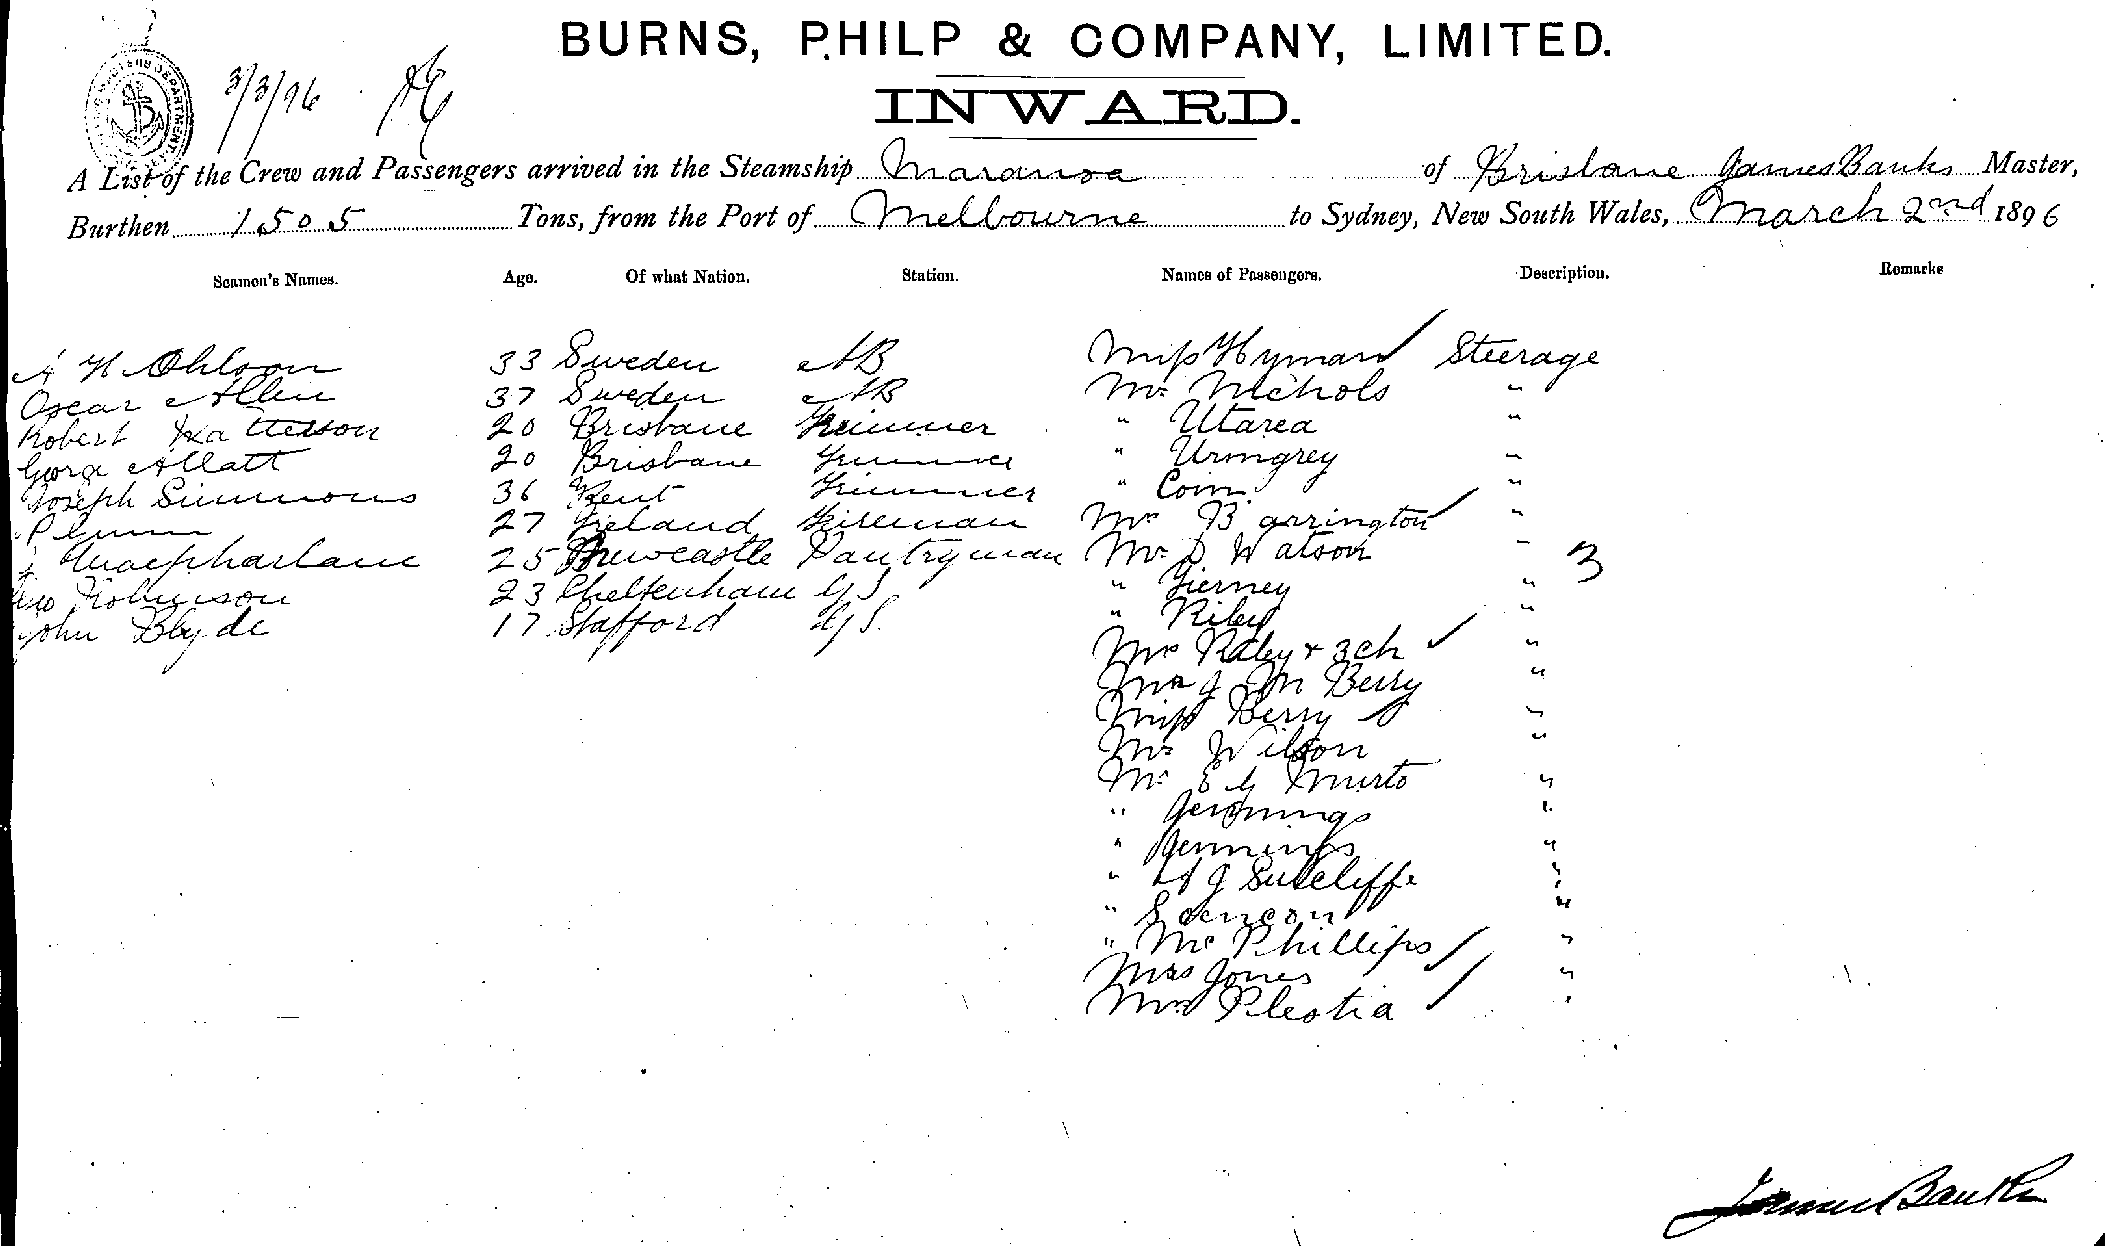 BURNS, PHILP & COMPANY, LIMITED.
3/3/96
INWARD.
A List of the Crew and Passengers arrived in the Steamship Maranoa of Brisbane James Banks Master,
Burthen 1505 Tons, from the Port of Melbourne to Sydney, New South Wales, March 2nd 1896
Seamen's Names. Age. Of what Nation. Station. Names of Passengers. Description. Remarks
A H Ohlson 33 Sweden AB Miss Hyman Steerage
Oscar Allen 37 Sweden AB Mr Nichols "
Robert 20 Brisbane Trimmer " Utarea "
George Allatt 20 Brisbane Trimmer " Urmgrey "
Joseph Simmons 36 Kent Trimmer " Coin "
27 Ireland Fireman Mrs Barrington "
J Macpharlane 25 Newcastle Pantryman Mr D Watson " 3
Geo Robinson 23 Cheltenham GS " Tierney "
John Blyde 17 Stafford GS " Riley "
Mrs Riley + 3 ch "
Mr J M Berry "
Miss Berry "
Mr Wilson "
Mr E G "
" Jennings "
" Jennings "
" A J Sutcliffe "
" "
" Mr Phillips "
Mrs Jones "
Mrs Plestia "
James Banks